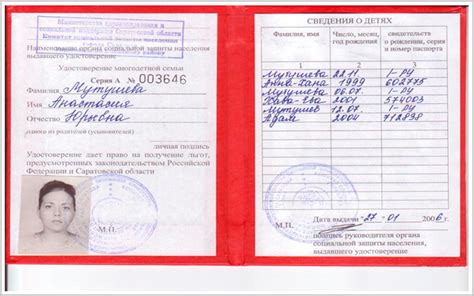 Министерство здравоохранения и
социальной поддержки Саратовской области
Комитет социальной защиты населения
Наименование органа социальной защиты населения
выдавшего удостоверение
Удостоверение многодетной семьи
Серия А № 003646
Фамилия Мутушева
Имя Анастасия
Отчество Юрьевна
(один из родителей (усыновителей)
личная подпись
Удостоверение дает право на получение льгот,
предусмотренных законодательством Российской
Федерации и Саратовской области
М.П.
СВЕДЕНИЯ О ДЕТЯХ
Фамилия, имя
Число, месяц,
год рождения
№ свидетельства
о рождении, серия
и номер паспорта
Мутушева 22.11. 1-РУ
Анна-Хана 1999 602775
Мутушева 06.07. 1-РУ
Хава-Ева 2001 574003
Мутушев 12.07. 1-РУ
Адам 2004 712898
Дата выдачи 27 01 2006 г.
М.П.
подпись руководителя органа
социальной защиты населения,
выдавшего удостоверение